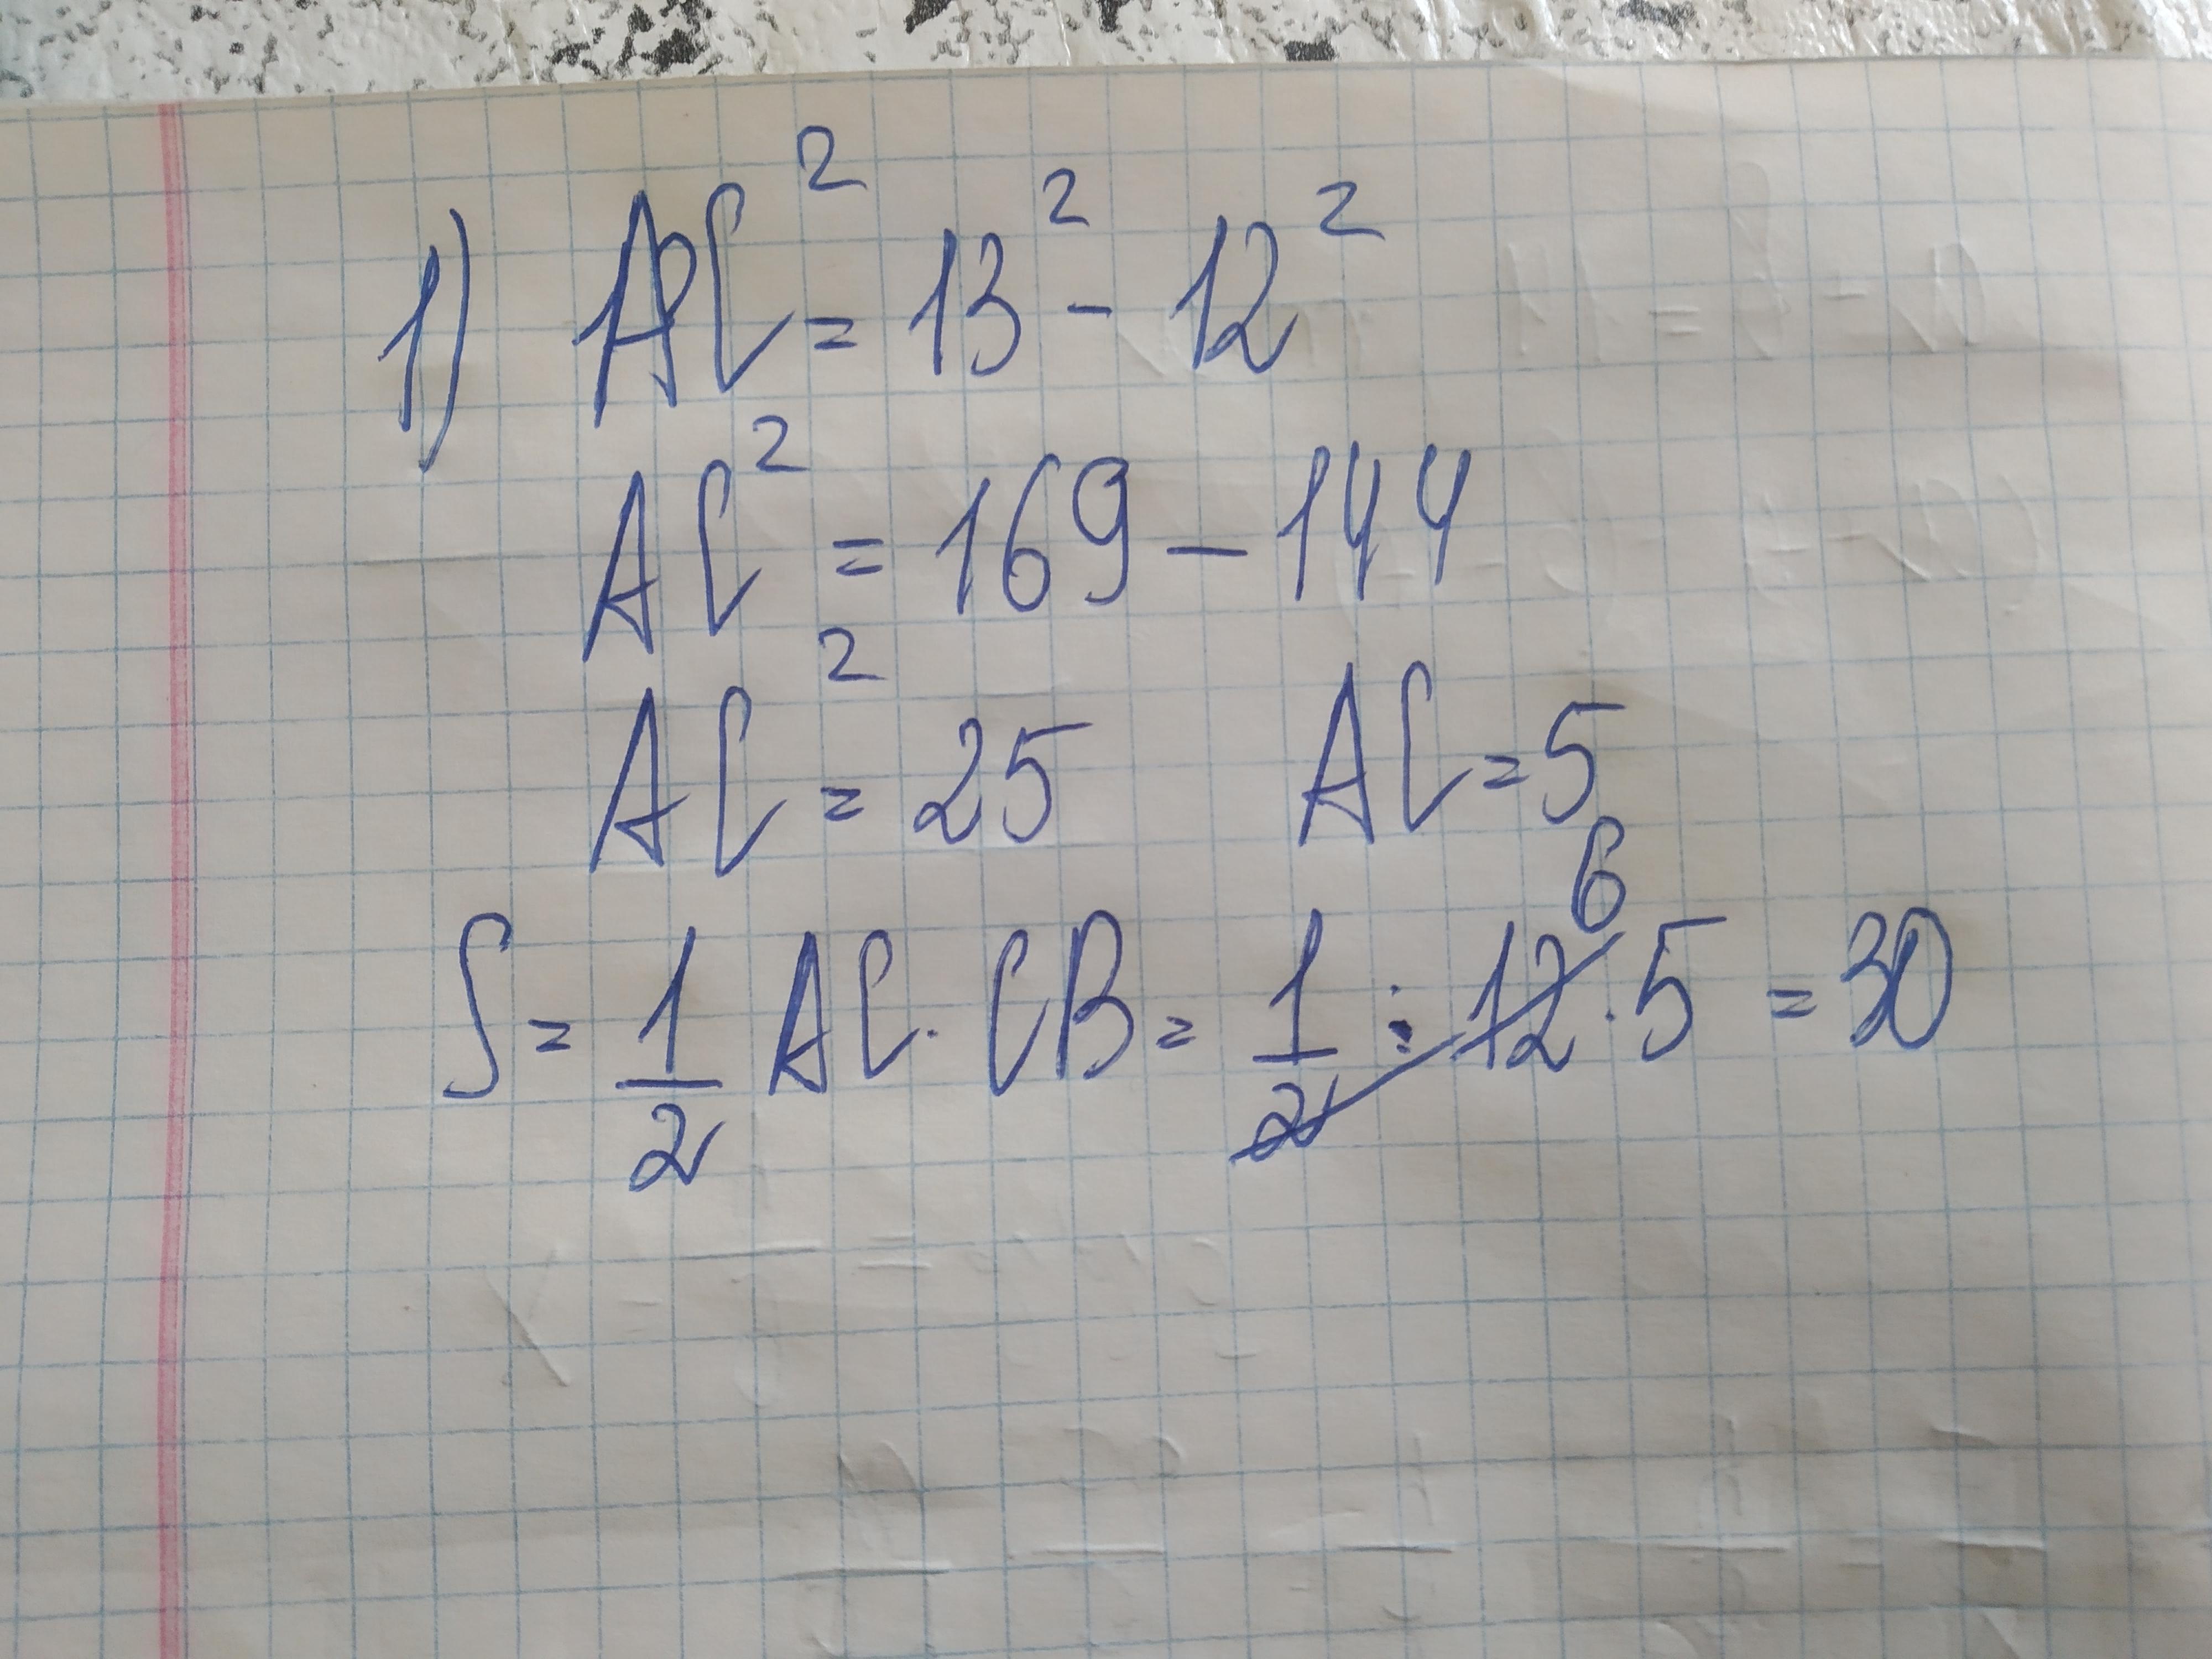 1) AC² = 13² - 12²
AC² = 169 - 144
AC² = 25 AC = 5
S = 1/2 AC · CB = 1/2 · 12 · 5 = 30
6